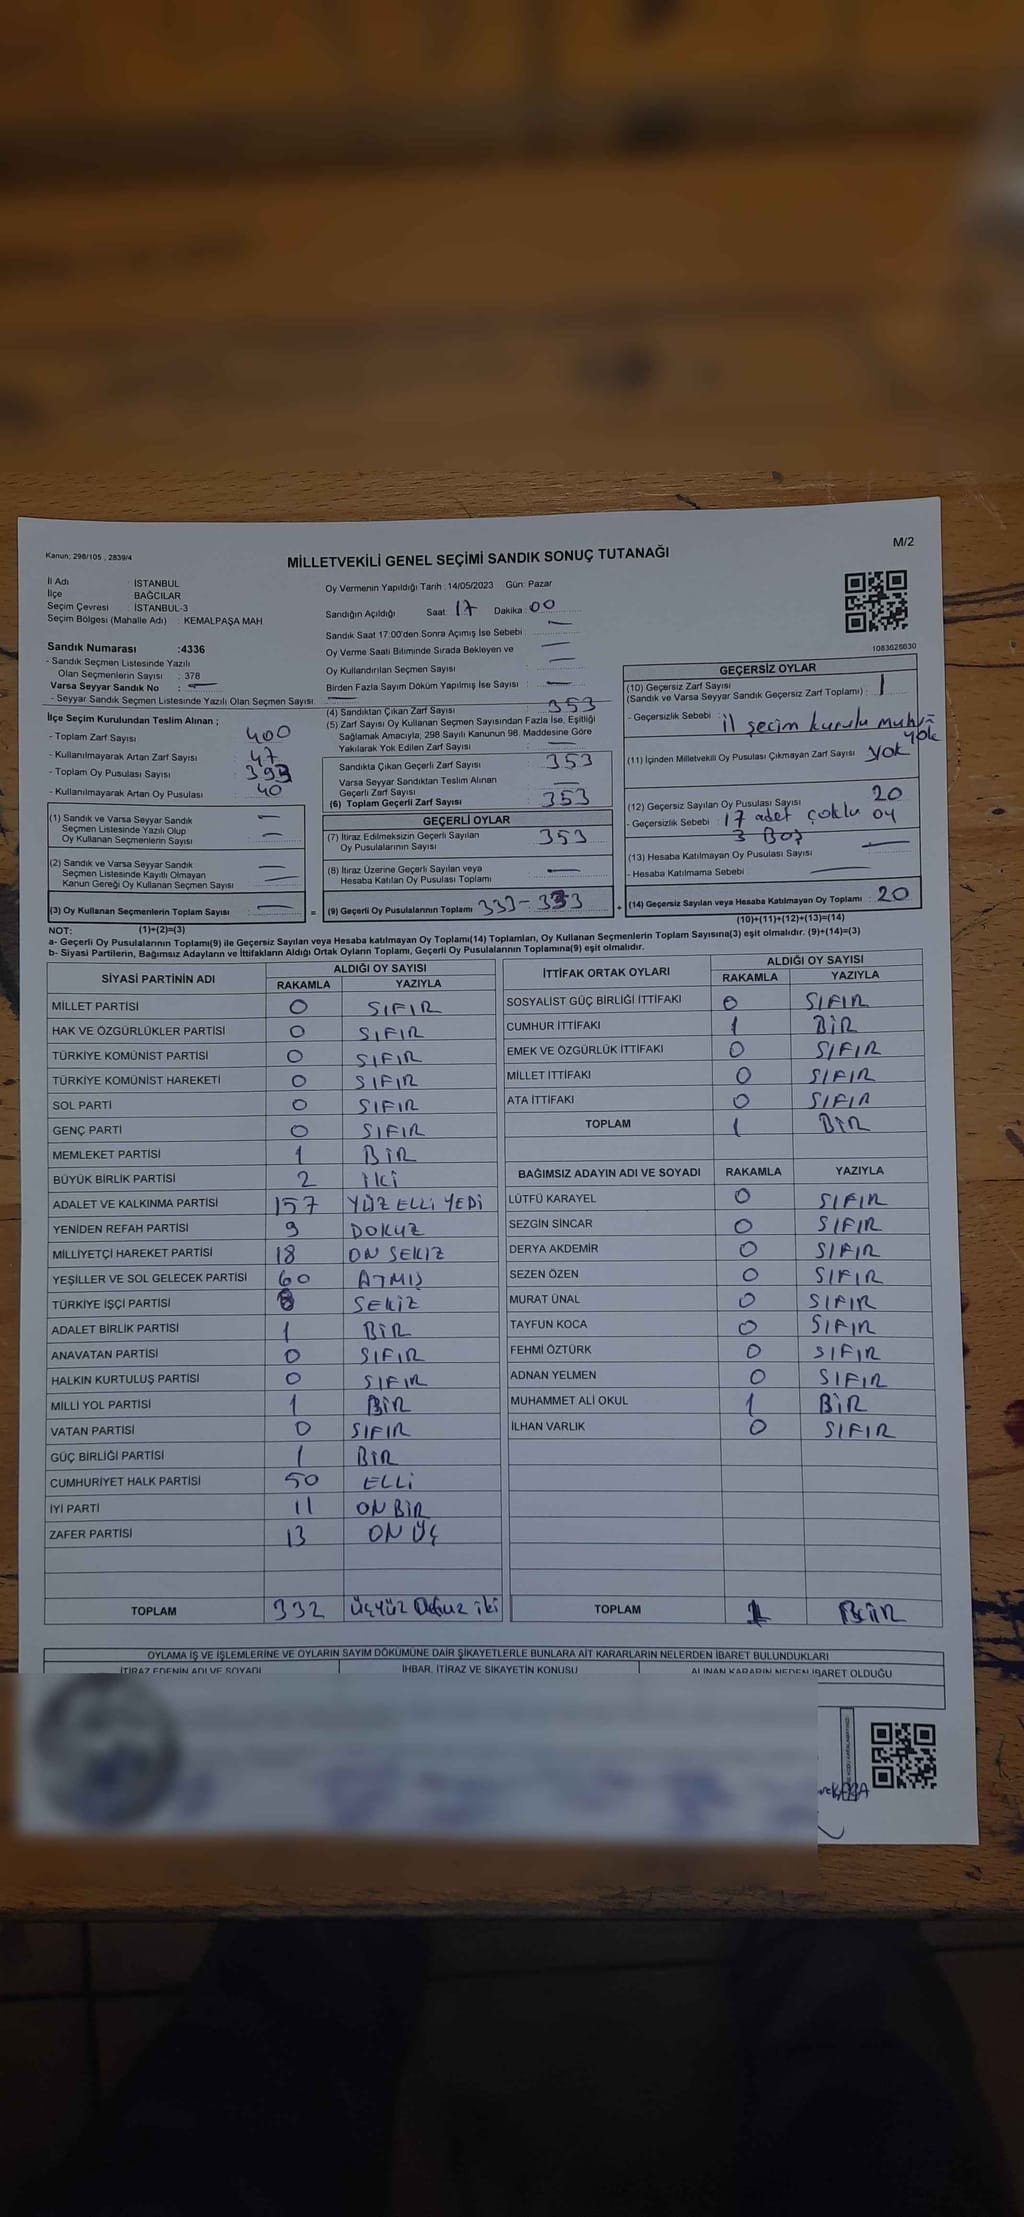 Kanun: 298/105 , 2839/4
M/2
MİLLETVEKİLİ GENEL SEÇİMİ SANDIK SONUÇ TUTANAĞI
İl Adı : İSTANBUL
İlçe : BAĞCILAR
Seçim Çevresi : İSTANBUL-3
Seçim Bölgesi (Mahalle Adı) : KEMALPAŞA MAH
Sandık Numarası :4336
- Sandık Seçmen Listesinde Yazılı
Olan Seçmenlerin Sayısı : 378
Varsa Seyyar Sandık No : —
- Seyyar Sandık Seçmen Listesinde Yazılı Olan Seçmen Sayısı : —
İlçe Seçim Kurulundan Teslim Alınan ;
- Toplam Zarf Sayısı : 400
- Kullanılmayarak Artan Zarf Sayısı : 47
- Toplam Oy Pusulası Sayısı : 393
- Kullanılmayarak Artan Oy Pusulası : 40
(1) Sandık ve Varsa Seyyar Sandık
Seçmen Listesinde Yazılı Olup
Oy Kullanan Seçmenlerin Sayısı : —
(2) Sandık ve Varsa Seyyar Sandık
Seçmen Listesinde Kayıtlı Olmayan
Kanun Gereği Oy Kullanan Seçmen Sayısı : —
(3) Oy Kullanan Seçmenlerin Toplam Sayısı : —
(1)+(2)=(3)
Oy Vermenin Yapıldığı Tarih : 14/05/2023 Gün: Pazar
Sandığın Açıldığı Saat: 17 Dakika : 00
Sandık Saat 17:00'den Sonra Açımış İse Sebebi : —
Oy Verme Saati Bitiminde Sırada Bekleyen ve
Oy Kullandırılan Seçmen Sayısı : —
Birden Fazla Sayım Döküm Yapılmış İse Sayısı : —
(4) Sandıktan Çıkan Zarf Sayısı : 353
(5) Zarf Sayısı Oy Kullanan Seçmen Sayısından Fazla İse, Eşitliği
Sağlamak Amacıyla, 298 Sayılı Kanunun 98. Maddesine Göre
Yakılarak Yok Edilen Zarf Sayısı : —
Sandıkta Çıkan Geçerli Zarf Sayısı : 353
Varsa Seyyar Sandıktan Teslim Alınan
Geçerli Zarf Sayısı : —
(6) Toplam Geçerli Zarf Sayısı : 353
GEÇERLİ OYLAR
(7) İtiraz Edilmeksizin Geçerli Sayılan
Oy Pusulalarının Sayısı : 353
(8) İtiraz Üzerine Geçerli Sayılan veya
Hesaba Katılan Oy Pusulası Toplamı : —
= (9) Geçerli Oy Pusulalarının Toplamı : 333-333
1083626630
GEÇERSİZ OYLAR
(10) Geçersiz Zarf Sayısı
(Sandık ve Varsa Seyyar Sandık Geçersiz Zarf Toplamı) : 1
- Geçersizlik Sebebi : il seçim kurulu
yok
(11) İçinden Milletvekili Oy Pusulası Çıkmayan Zarf Sayısı : yok
(12) Geçersiz Sayılan Oy Pusulası Sayısı : 20
- Geçersizlik Sebebi : 17 adet çoklu oy
3 Boş
(13) Hesaba Katılmayan Oy Pusulası Sayısı : —
- Hesaba Katılmama Sebebi : —
+ (14) Geçersiz Sayılan veya Hesaba Katılmayan Oy Toplamı : 20
(10)+(11)+(12)+(13)=(14)
NOT:
a- Geçerli Oy Pusulalarının Toplamı(9) ile Geçersiz Sayılan veya Hesaba katılmayan Oy Toplamı(14) Toplamları, Oy Kullanan Seçmenlerin Toplam Sayısına(3) eşit olmalıdır. (9)+(14)=(3)
b- Siyasi Partilerin, Bağımsız Adayların ve İttifakların Aldığı Ortak Oyların Toplamı, Geçerli Oy Pusulalarının Toplamına(9) eşit olmalıdır.
SİYASİ PARTİNİN ADI ALDIĞI OY SAYISI
RAKAMLA YAZIYLA
MİLLET PARTİSİ 0 SIFIR
HAK VE ÖZGÜRLÜKLER PARTİSİ 0 SIFIR
TÜRKİYE KOMÜNİST PARTİSİ 0 SIFIR
TÜRKİYE KOMÜNİST HAREKETİ 0 SIFIR
SOL PARTİ 0 SIFIR
GENÇ PARTİ 0 SIFIR
MEMLEKET PARTİSİ 1 BİR
BÜYÜK BİRLİK PARTİSİ 2 İKİ
ADALET VE KALKINMA PARTİSİ 157 YÜZ ELLİ YEDİ
YENİDEN REFAH PARTİSİ 9 DOKUZ
MİLLİYETÇİ HAREKET PARTİSİ 18 ON SEKİZ
YEŞİLLER VE SOL GELECEK PARTİSİ 60 ATMIŞ
TÜRKİYE İŞÇİ PARTİSİ 8 SEKİZ
ADALET BİRLİK PARTİSİ 1 BİR
ANAVATAN PARTİSİ 0 SIFIR
HALKIN KURTULUŞ PARTİSİ 0 SIFIR
MİLLİ YOL PARTİSİ 1 BİR
VATAN PARTİSİ 0 SIFIR
GÜÇ BİRLİĞİ PARTİSİ 1 BİR
CUMHURİYET HALK PARTİSİ 50 ELLİ
İYİ PARTİ 11 ON BİR
ZAFER PARTİSİ 13 ON ÜÇ
TOPLAM 332 üçyüz Otuz iki
İTTİFAK ORTAK OYLARI ALDIĞI OY SAYISI
RAKAMLA YAZIYLA
SOSYALİST GÜÇ BİRLİĞİ İTTİFAKI 0 SIFIR
CUMHUR İTTİFAKI 1 BİR
EMEK VE ÖZGÜRLÜK İTTİFAKI 0 SIFIR
MİLLET İTTİFAKI 0 SIFIR
ATA İTTİFAKI 0 SIFIR
TOPLAM 1 BİR
BAĞIMSIZ ADAYIN ADI VE SOYADI RAKAMLA YAZIYLA
LÜTFÜ KARAYEL 0 SIFIR
SEZGİN SİNCAR 0 SIFIR
DERYA AKDEMİR 0 SIFIR
SEZEN ÖZEN 0 SIFIR
MURAT ÜNAL 0 SIFIR
TAYFUN KOCA 0 SIFIR
FEHMİ ÖZTÜRK 0 SIFIR
ADNAN YELMEN 0 SIFIR
MUHAMMET ALİ OKUL 1 BİR
İLHAN VARLIK 0 SIFIR
TOPLAM 1 BİR
OYLAMA İŞ VE İŞLEMLERİNE VE OYLARIN SAYIM DÖKÜMÜNE DAİR ŞİKAYETLERLE BUNLARA AİT KARARLARIN NELERDEN İBARET BULUNDUKLARI
İTİRAZ EDENİN ADI VE SOYADI İHBAR, İTİRAZ VE ŞİKAYETİN KONUSU ALINAN KARARIN NEDEN İBARET OLDUĞU